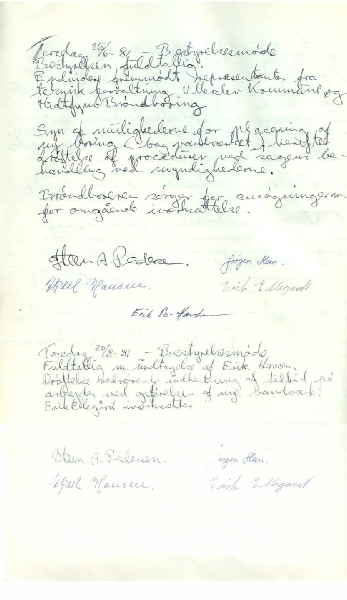 Torsdag 25/6-81 - Bestyrelsesmøde
Bestyrelsen fuldtallig.
Endvidere fremmødt repræsentanter fra
teknisk forvaltning, Ullerslev Kommune og
Midtfyns Brøndboring
Syn af mulighederne for placering af
ny boring bag vandværket,
drøftelse af proceduren ved sagens be-
handling ved myndighederne.
Brøndboreren sørger for ansøgningen
for omgående iværksættelse.
Steen A. Pedersen. Jørgen Steen.
Hansen. Erik Ellegaard
Erik
Torsdag - Bestyrelsesmøde
Fuldtallig m. undtagelse af Erik Hansen.
Drøftelse vedrørende indhentning af tilbud på
arbejder ved opførelsen af nyt vandværk.
Erik Ellegård iværksætter
Steen A. Pedersen. Jørgen Steen.
Hansen. Erik Ellegaard